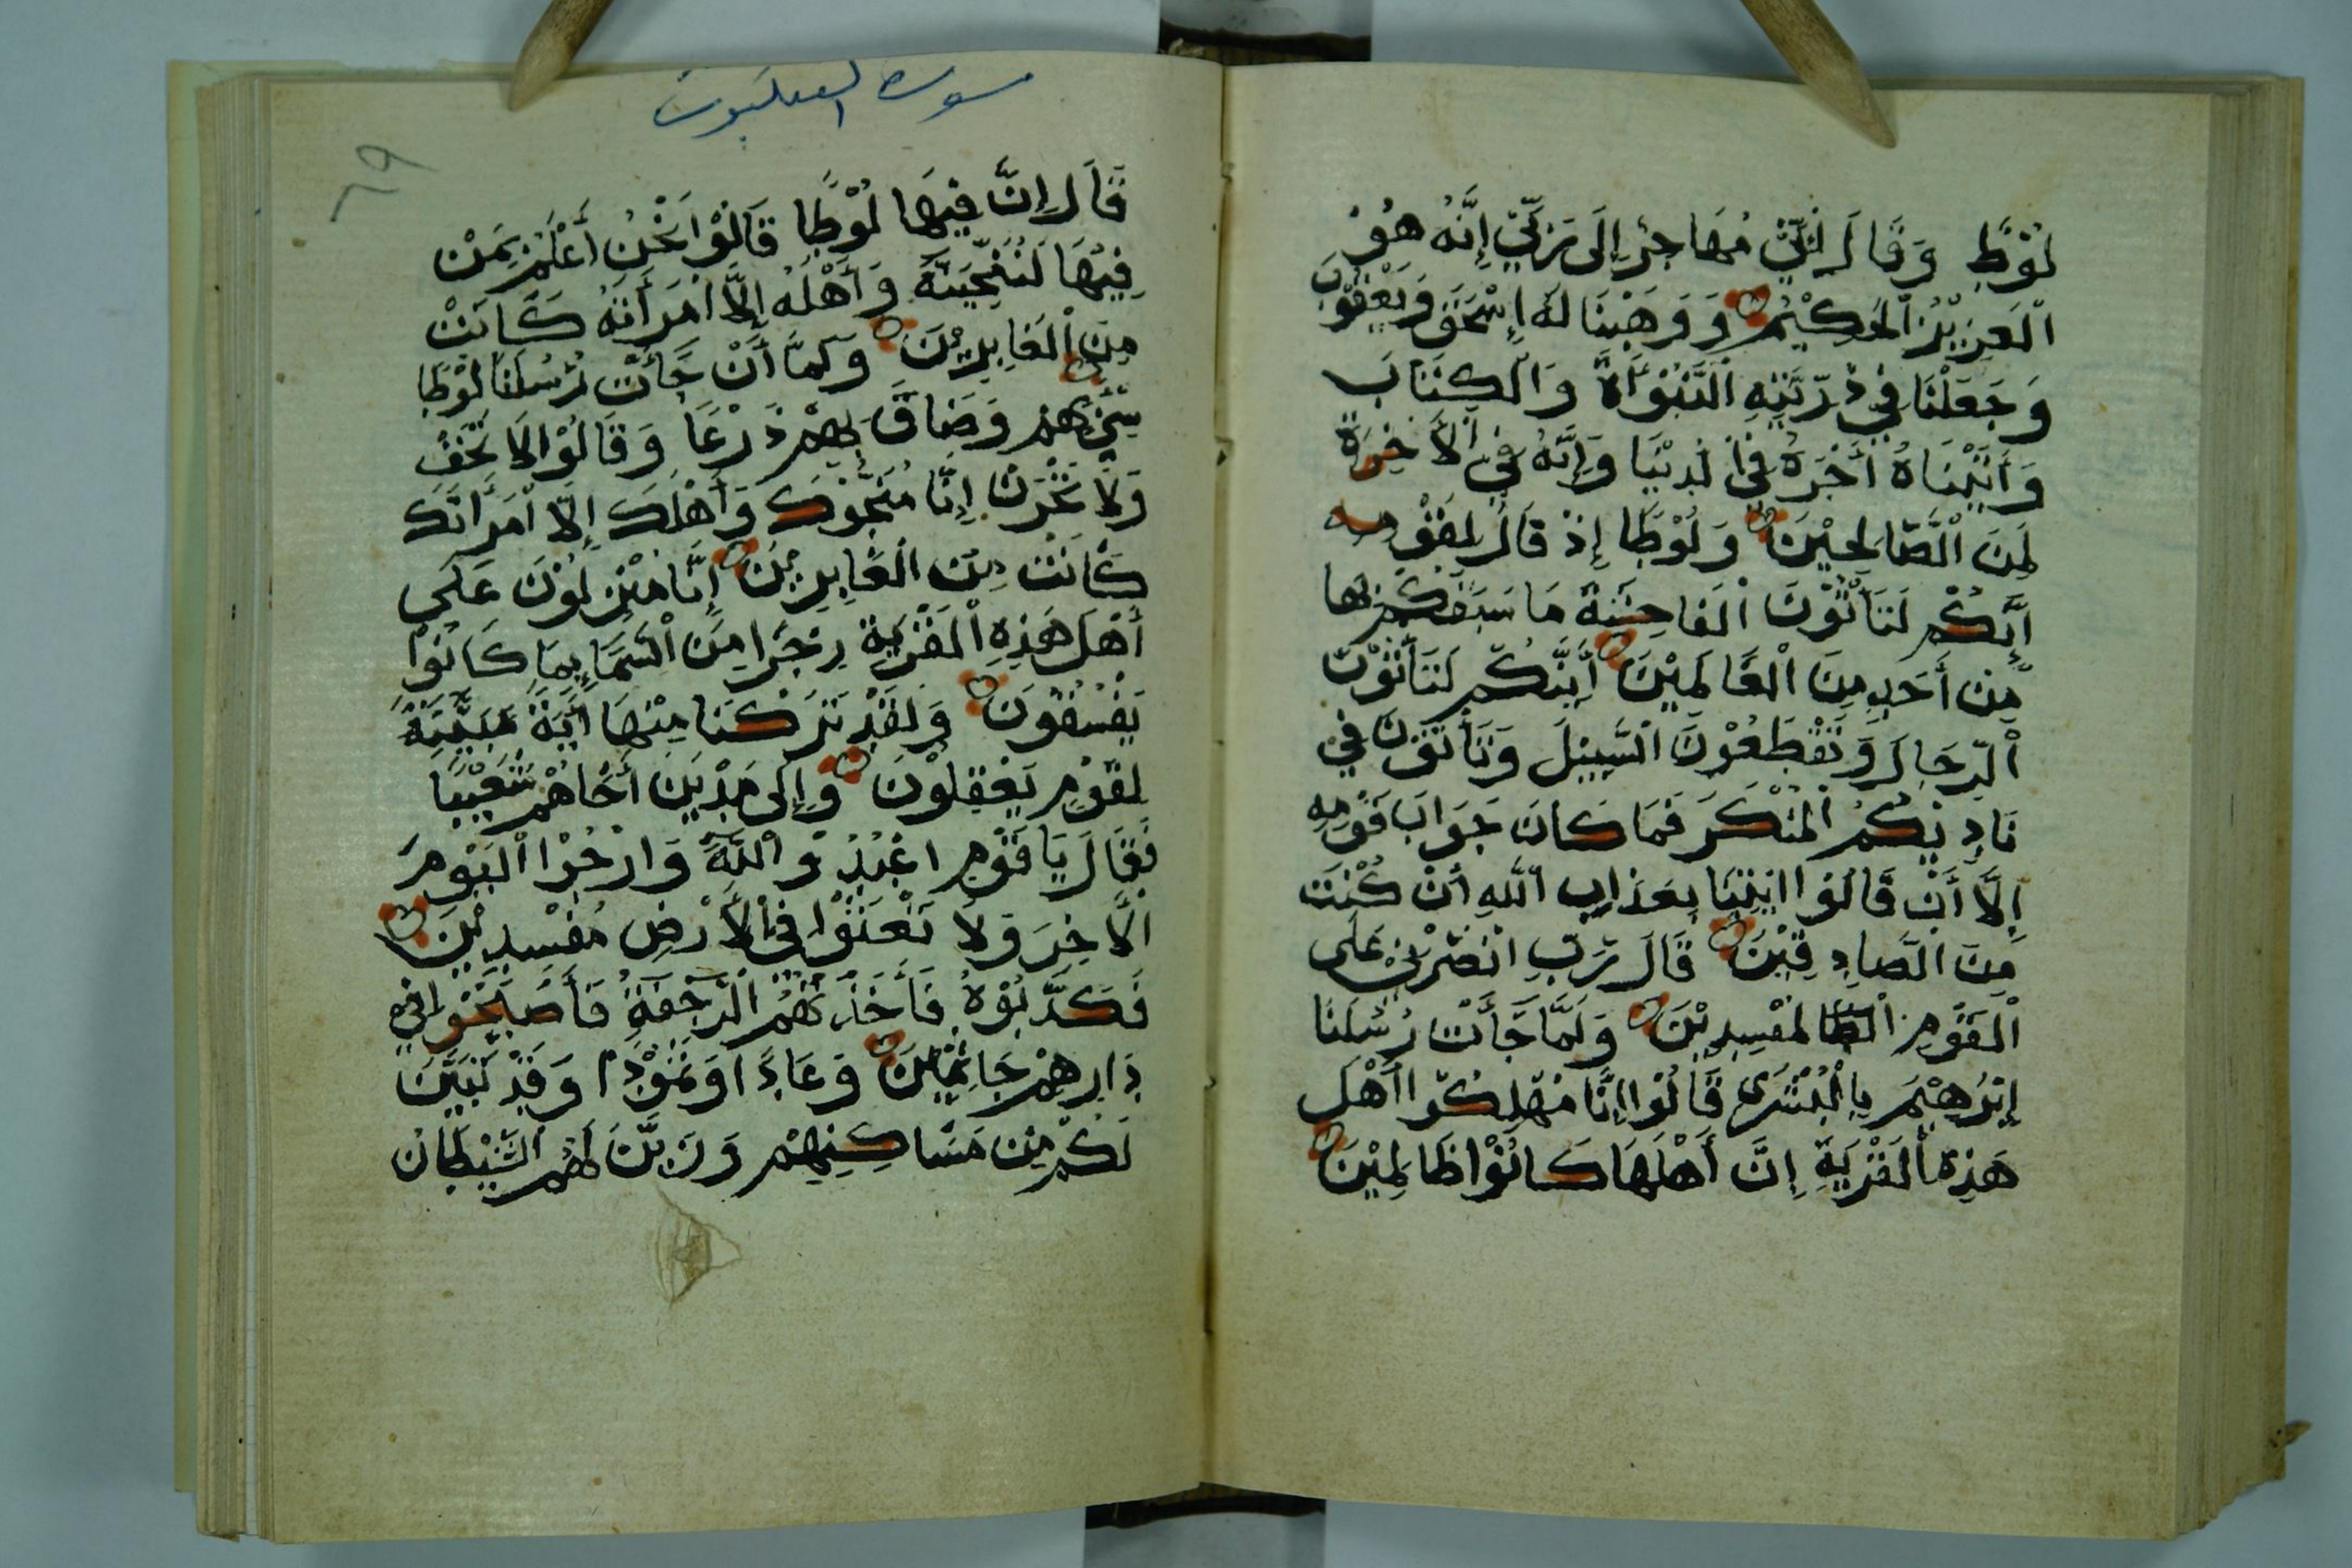 لُوْطٌ وَقَالَ إِنِّيْ مُهَاجِرٌ إِلَى رَبِّيْ إِنَّهُ هُوَ
اْلعَزِيْزُ اْلحَكِيْمُ وَوَهَبْنَا لَهُ إِسْحَقَ وَيَعْقُوْبَ
وَجَعَلْنَا فِيْ ذُرِّيَّتِهِ النُّبُوَّةَ وَالْكِتَابَ
وَأَتَيْنَاهُ أَجْرَهُ فِيْ الدُنْيَا وَإِنَّهُ فِيْ اْلأَخِرَةِ
لَمِنَ الْصَّالِحِيْنَ وَلُوْطًا إِذْ قَالَ لِقَوْمِهِ
إِنَّكُمْ لَتَأْتُوْنَ اْلفَاحِشَةَ مَا سَبَقَكُمْ بِهَا
مِنْ أَحَدٍ مِنَ اْلعَالَمِيْنَ أَئِنَّكُمْ لَتَأْتُوْنَ
اْلرِّجَالَ وَتَقْطَعُوْنَ السَّبِيْلَ وَتَأْتُوْنَ فِيْ
نَادِيْكُمُ اْلمُنْكَرَ فَمَا كَانَ جَوَابَ قَوْمِهِ
إِلَّا أَنْ قَالُوْا ائْتِنَا بِعَذَابِ اللهِ أنْ كُنْتَ
مِنَ الصَّادِقِيْنَ قَالَ رَبِّ انْصُرْنِيْ عَلَى
اْلقَوْمِ الظا لمفْسِدِيْنَ وَلَمَّا جَأَتْ رُسُلَنَا
إِبْرَهِيْمَ بِالْبُشْرَى قَالُوْا إِنَّا مُهْلِكُوْا أَهْلَ
هَذِهِ اْلقَرْيَةِ إِنَّ أَهْلَهَا كَانُوْا ظَالِمِيْنَ
سورة العنكبوت
٨٩
قَالَ إِنَّ فِيْهَا لُوْطًا قَالُوْا نَحْنُ أَعْلَمُ بِمَنْ
فِيْهَا لَنُنَجِّيَنَّهُ وَأَهْلَهُ إِلَّا امْرَأَتَهُ كَانَتْ
مِنَ اْلغَابِرِيْنَ وَلَمَّا أَنْ جَأَتْ رُسُلَنَا لُوْطًا
سِيْءَ بِهِمْ وَضَاقَ بِهِمْ ذَرْعًا وَقَالُوْا لَا تَخَفْ
وَلَا تَحْزَنْ إِنَّا مُنَجُّوْكَ وَأَهْلَكَ إِلَّا امْرَأَتَكَ
كَانَتْ مِنَ اْلغَابِرِيْنَ إِنَّا مُنْزِلُوْنَ عَلَى
أَهْلِ هَذِهِ اْلقَرْيَةِ رِجْزًا مِنَ السَّمَاءِ بِمَا كَانُوْا
يَفْسُقُوْنَ وَلَقَدْ تَرَكْنَا مِنْهَا أَيَةً بَيِّنَةً
لِقَوْمٍ يَعْقِلُوْنَ وَإِلَى مَدْيَنَ أَخَاهُمْ شُعَيْبًا
فَقَالَ يَا قَوْمِ اعْبُدُوْا اللهَ وَارْجُوْا اْليَوْمَ
اْلأَخِرَ وَلَا تَعْثَوْا فِيْ اْلأَرْضِ مُفْسِدِيْنَ
فَكَذَّبُوْهُ فَأَخَذَتْهُمُ الرَّجْفَةُ فَأَصْبَحُوْا فِيْ
دَارِهِمْ جَاثِمِيْنَ وَعَادًا وَثَمُوْدًا وَقَدْ تَبَيَّنَ
لَكُمْ مِنْ مَسَاكِنِهِمْ وَزَيَّنَ لَهُمُ الشَّيْطَانُ